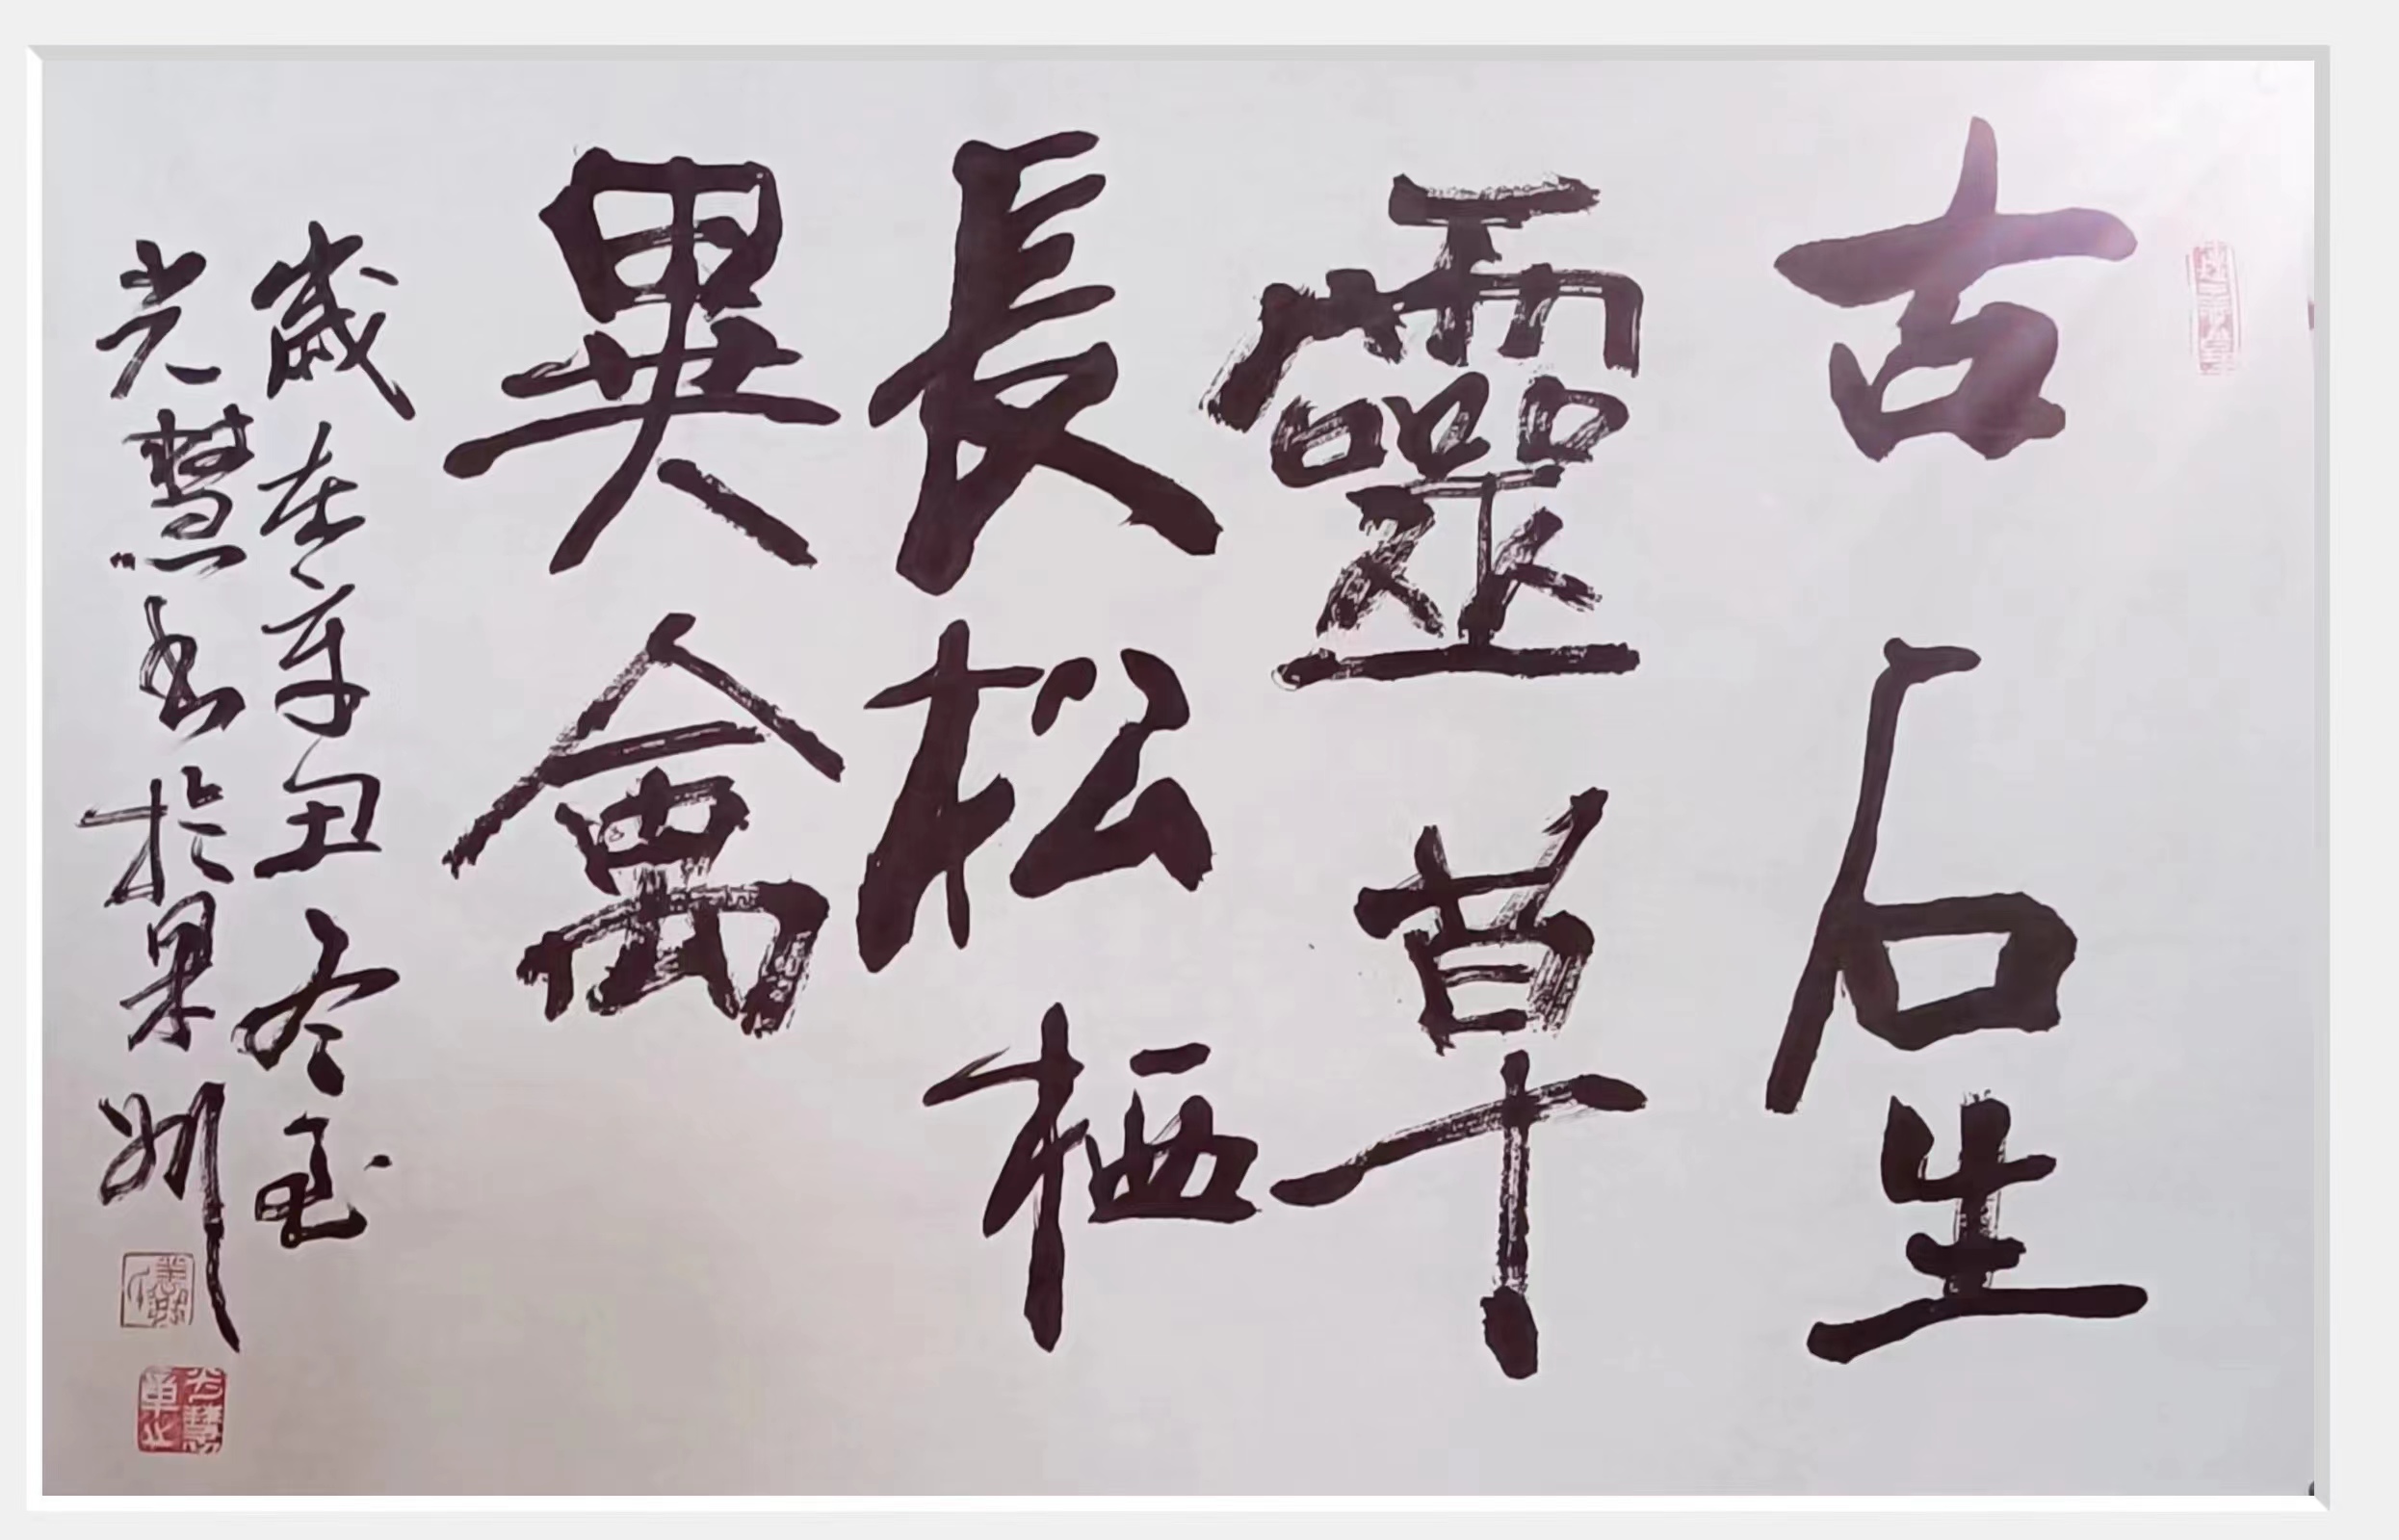 古石生
靈草
長松栖
異禽
歲在辛丑冬月
光慧書於果州